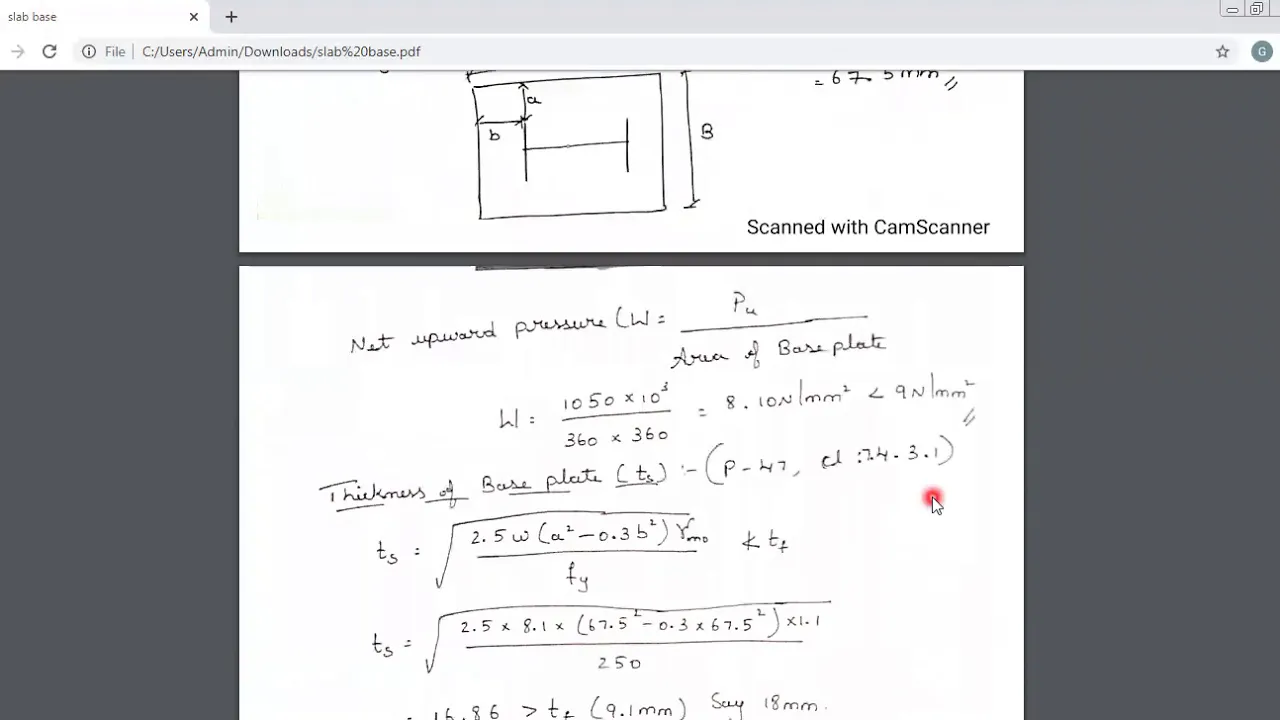 slab base
File C:/Users/Admin/Downloads/slab%20base.pdf
G
= 67.5mm
a
b
B
Scanned with CamScanner
Net upward pressure (W = Pu / Area of Base plate
W = 1050 × 10³ / 360 × 360 = 8.10N/mm² < 9N/mm²
Thickness of Base plate (ts) :- (P-47, cl :7.4.3.1)
ts = √ 2.5 w (a² - 0.3b²) γmo / fy ≮ tf
ts = √ 2.5 × 8.1 × (67.5² - 0.3 × 67.5²) × 1.1 / 250
= 16.86 > tf (9.1mm) Say 18mm.